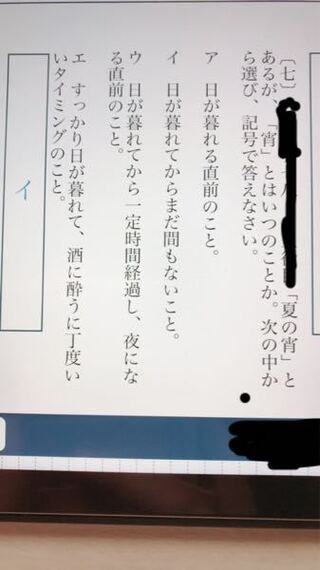 〔七〕「夏の宵」と
あるが、「宵」とはいつのことか。次の中か
ら選び、記号で答えなさい。
ア　日が暮れる直前のこと。
イ　日が暮れてからまだ間もないこと。
ウ　日が暮れてから一定時間経過し、夜にな
る直前のこと。
エ　すっかり日が暮れて、酒に酔うに丁度い
いタイミングのこと。
イ